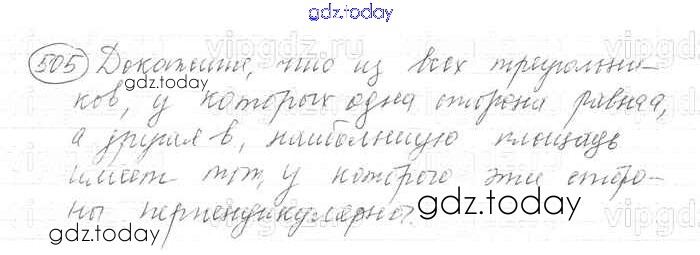 gdz.today
505 Докажите, что из всех треугольни-
gdz.today
ков, у которых одна сторона равна а,
а другая в, наибольшую площадь
имеет тот, у которого эти сторо-
ны перпендикулярно.
gdz.today
gdz.today